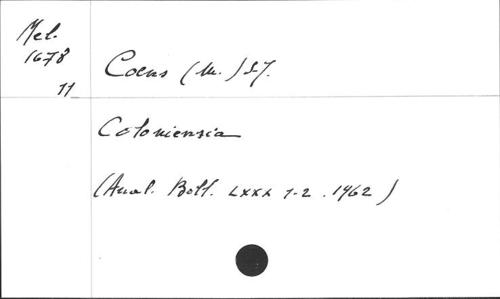 Mel.
1678
11
Coens (M.) S.J.
Coloniensia
(Anal. Boll. LXXX 1-2. 1962)